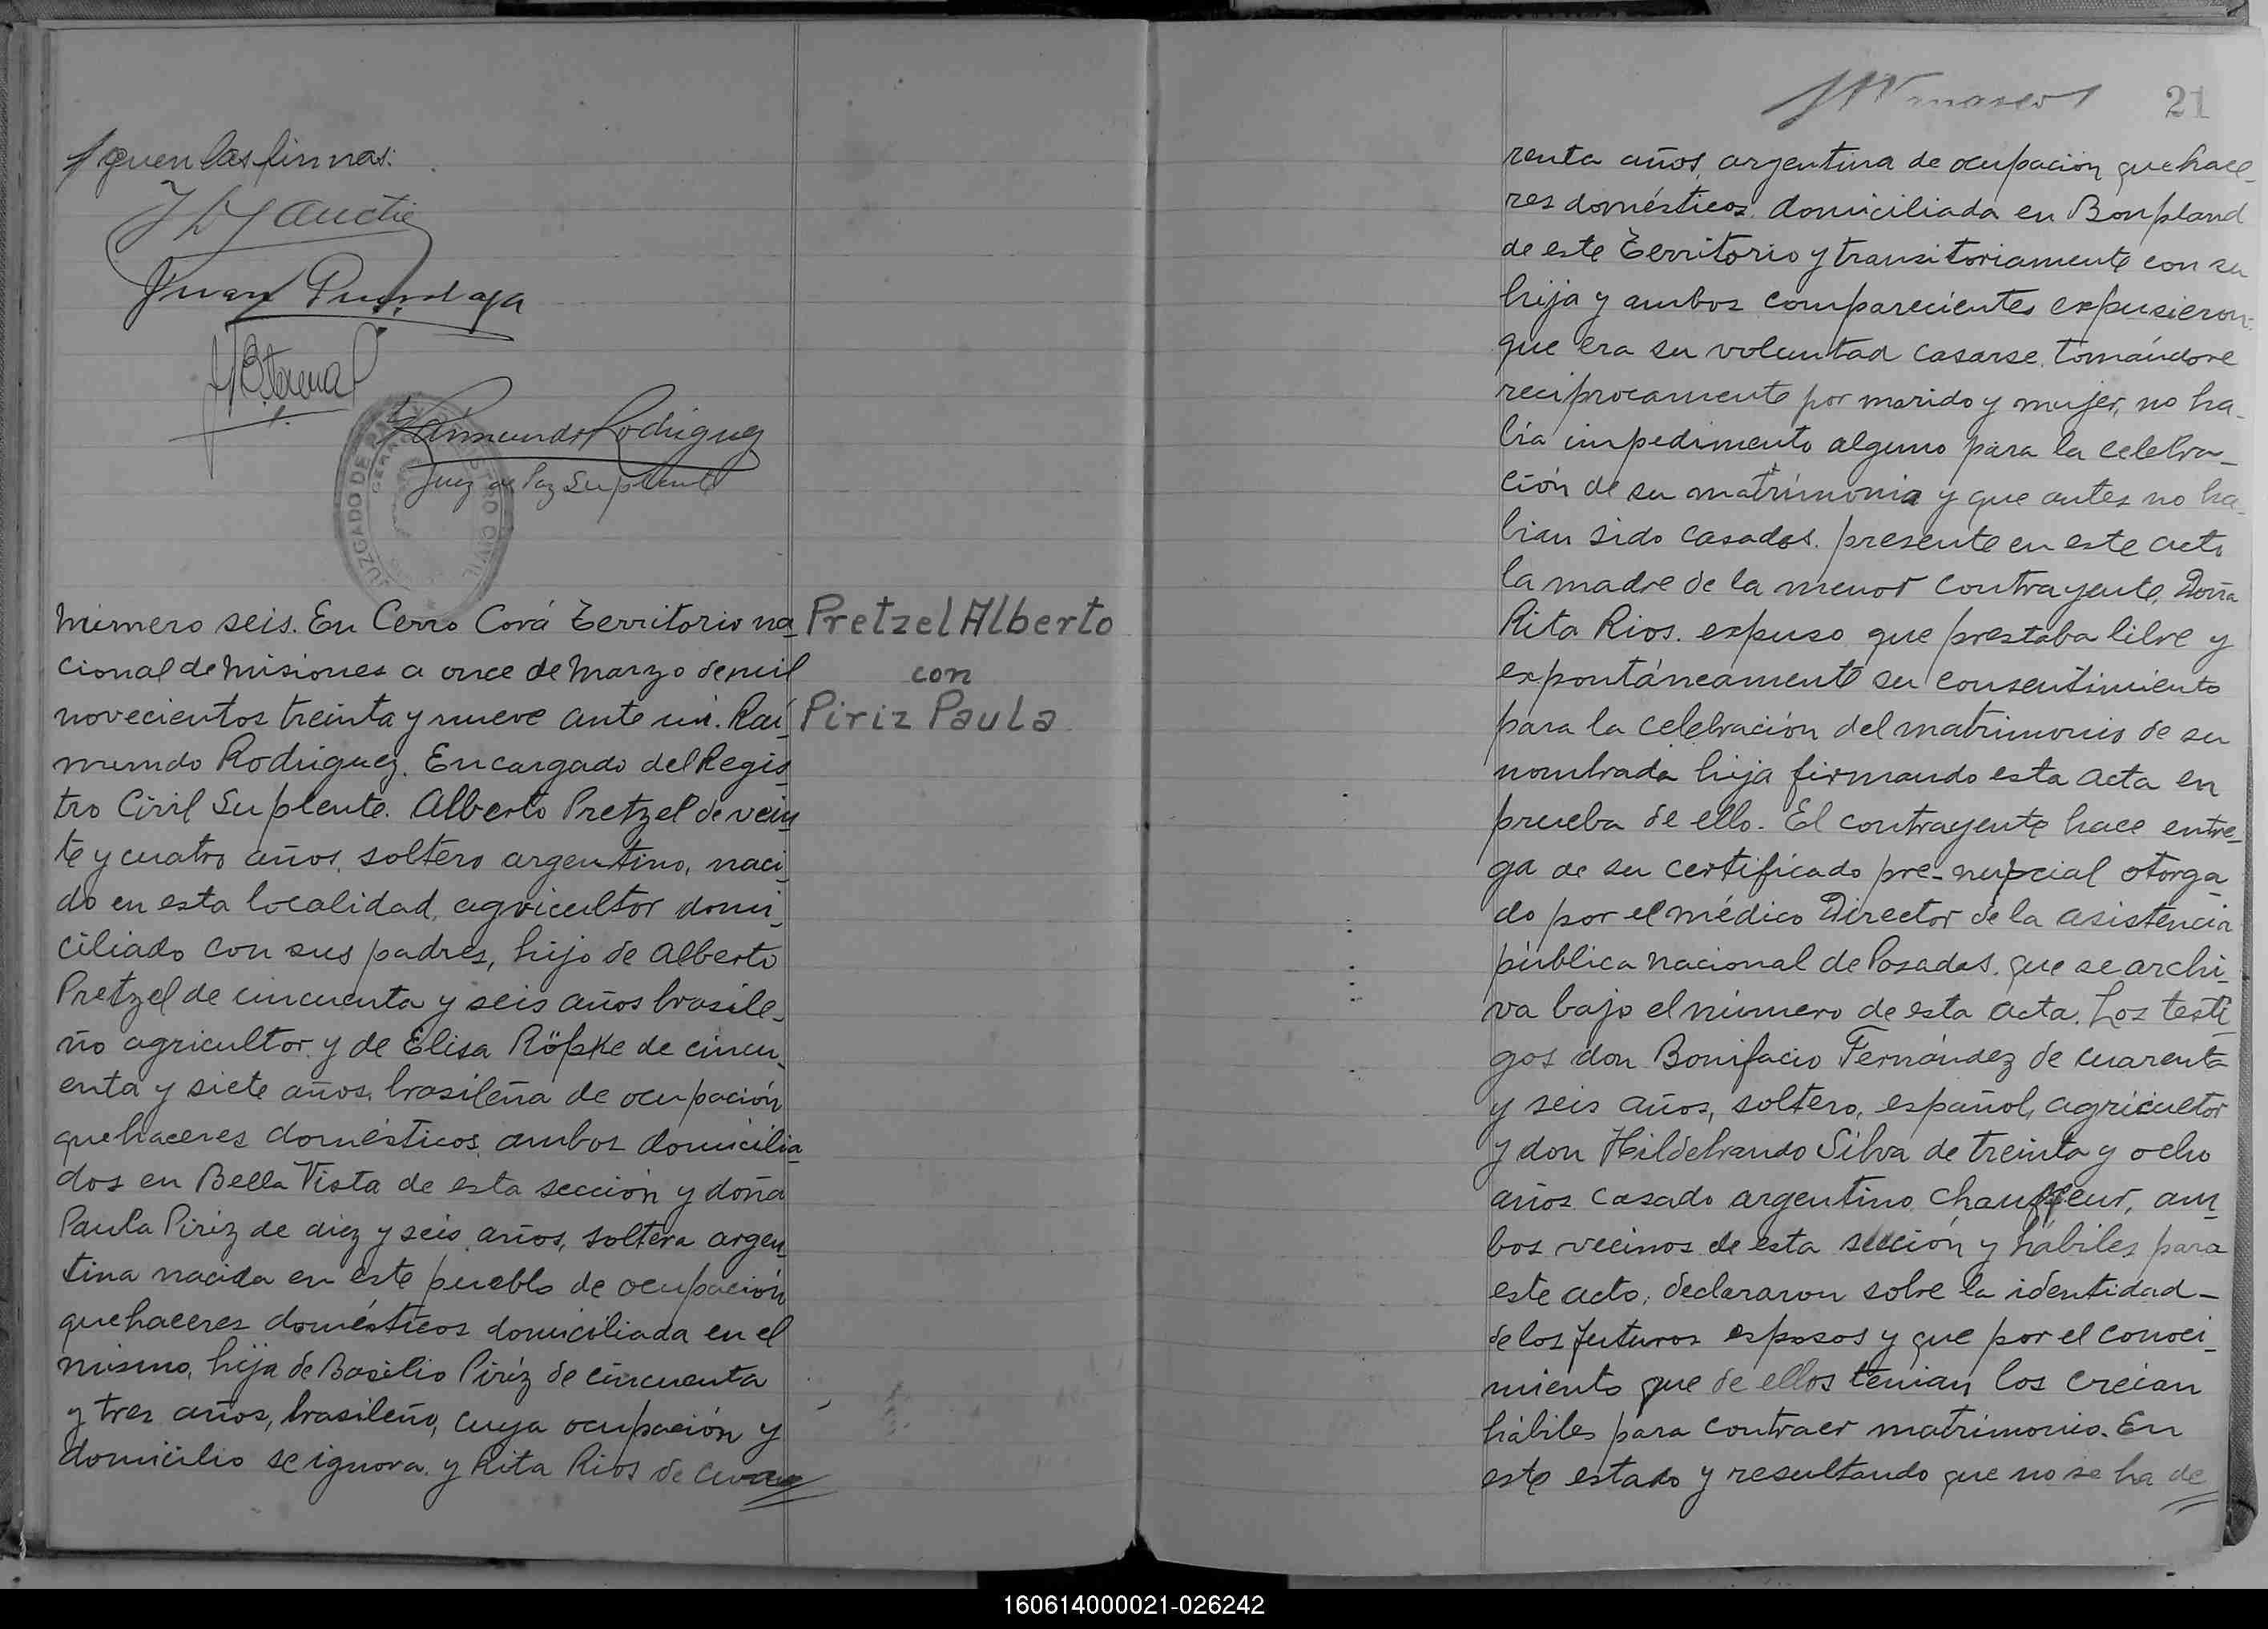 Siguen las firmas:
Juan
Raimundo Rodriguez
Juez de Paz Suplente
JUZGADO DE PAZ Y REGISTRO CIVIL
Número seis. En Cerro Corá Territorio na_
cional de Misiones a once de Marzo de mil
novecientos treinta y nueve ante mi. Rai_
mundo Rodriguez. Encargado del Regis_
tro Civil Suplente. Alberto Pretzel de vein_
te y cuatro años, soltero argentino, naci_
do en esta localidad, agricultor domi_
ciliado con sus padres, hijo de Alberto
Pretzel de cincuenta y seis años brasile_
ño agricultor y de Elisa Röpke de cincu_
enta y siete años, brasileña de ocupación
quehaceres domésticos, ambos domicilia_
dos en Bella Vista de esta sección y doña
Paula Piriz de diez y seis años, soltera argen_
tina nacida en este pueblo de ocupación
quehaceres domésticos domiciliada en el
mismo, hija de Basilio Piriz de cincuenta
y tres años, brasileño, cuya ocupación y
domicilio se ignora. y Rita Rios de cua_
Pretzel Alberto
con
Piriz Paula
21
renta años, argentina de ocupación quehace_
res domésticos. domiciliada en Bonpland
de este Territorio y transitoriamente con su
hija y ambos comparecientes expusieron:
que era su voluntad casarse. tomándose
reciprocamente por marido y mujer, no ha_
bía impedimento alguno para la celebra_
ción de su matrimonio y que antes no ha_
bian sido casados. presente en este acto
la madre de la menor contrayente, Doña
Rita Rios. expuso que prestaba libre y
expontáneamente su consentimiento
para la celebración del matrimonio de su
nombrada hija firmando esta acta en
prueba de ello. El contrayente hace entre_
ga de su certificado pre-nupcial otorga_
do por el médico Director de la asistencia
pública nacional de Posadas. que se archi_
va bajo el número de esta acta. Los testi_
gos don Bonifacio Fernández de cuarenta
y seis años, soltero, español, agricultor
y don Hildebrando Silva de treinta y ocho
años casado argentino chauffeur, am_
bos vecinos de esta sección y hábiles para
este acto, declararon sobre la identidad_
de los futuros esposos y que por el conoci_
miento que de ellos tenian los creían
hábiles para contraer matrimonio. En
este estado y resultando que no se ha de
160614000021-026242